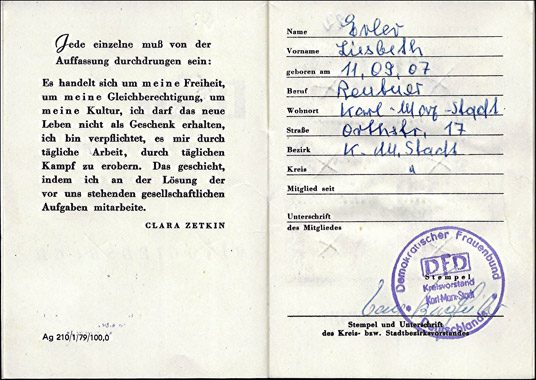 Jede einzelne muß von der
Auffassung durchdrungen sein:
Es handelt sich um meine Freiheit,
um meine Gleichberechtigung, um
meine Kultur, ich darf das neue
Leben nicht als Geschenk erhalten,
ich bin verpflichtet, es mir durch
tägliche Arbeit, durch täglichen
Kampf zu erobern. Das geschieht,
indem ich an der Lösung der
vor uns stehenden gesellschaftlichen
Aufgaben mitarbeite.
CLARA ZETKIN
Ag 210/1/79/100,0
Name Erler
Vorname Lisbeth
geboren am 11.09.07
Beruf Rentner
Wohnort Karl-Marx-Stadt
Straße Orthstr. 17
Bezirk K.M.Stadt
Kreis "
Mitglied seit
Unterschrift
des Mitgliedes
Demokratischer Frauenbund
DFD
Stempel
Kreisvorstand
Karl-Marx-Stadt
Deutschlands
Stempel und Unterschrift
des Kreis- bzw. Stadtbezirksvorstandes